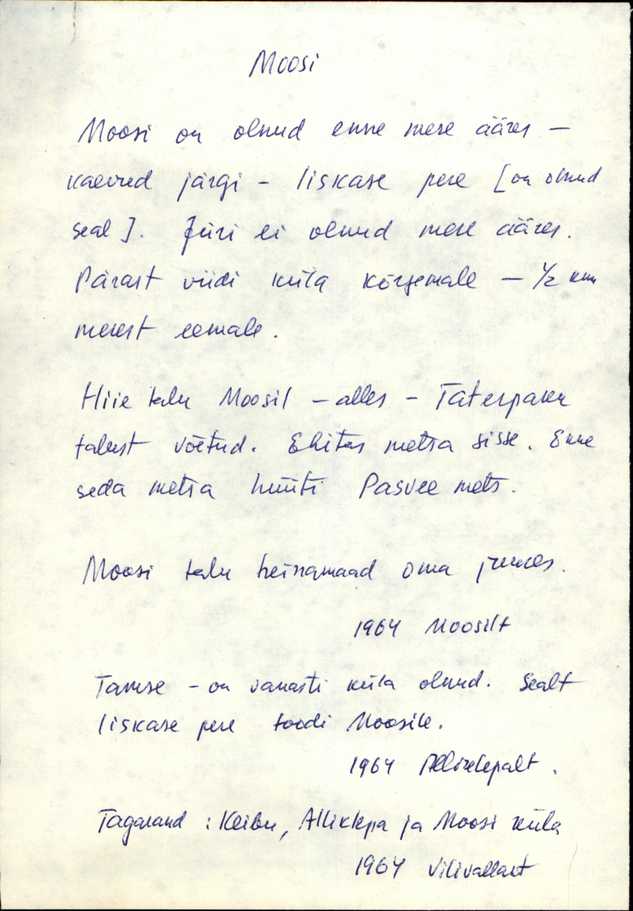 Moosi
Moosi on olnud enne mere ääres –
kaevud järgi – Iiskase pere [on olnud
seal]. Jüri ei olnud mere ääres.
Pärast viidi küla kõrgemale – 1/2 km
merest eemale.
Hiie talu Moosil – alles – Taterpaku
talust võetud. Ehitas metsa sisse. Enne
seda metsa hüüti Pasvee mets.
Moosi talu heinamaad oma juures.
1964 Moosilt
Tamse – on vanasti küla olnud. Sealt
Iiskase pere toodi Moosile.
1964 Alliklepalt.
Tagarand : Keibu, Alliklepa ja Moosi küla
1964 Vilivallast